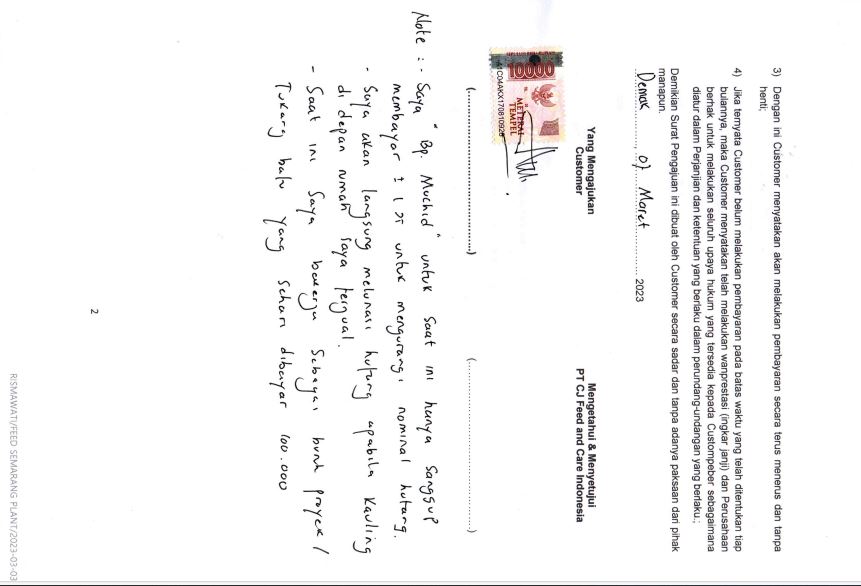 3) Dengan ini Customer menyatakan akan melakukan pembayaran secara terus menerus dan tanpa
henti;
4) Jika ternyata Customer belum melakukan pembayaran pada batas waktu yang telah ditentukan tiap
bulannya, maka Customer menyatakan telah melakukan wanprestasi (ingkar janji) dan Perusahaan
berhak untuk melakukan seluruh upaya hukum yang tersedia kepada Custompeber sebagaimana
diatur dalam Perjanjian dan ketentuan yang berlaku dalam perundang-undangan yang berlaku.;
Demikian Surat Pengajuan ini dibuat oleh Customer secara sadar dan tanpa adanya paksaan dari pihak
manapun.
Demak, 07 Maret 2023
Yang Mengajukan
Customer
Mengetahui & Menyetujui
PT CJ Feed and Care Indonesia
10000
METERAI
TEMPEL
A1C04AKX170810926
(................................................)
(................................................)
Note : - Saya "Bp. Muchid" untuk saat ini hanya sanggup
membayar ± 1 untuk mengurangi nominal hutang.
- Saya akan langsung melunasi hutang apabila kavling
di depan rumah saya terjual.
- Saat ini saya bekerja sebagai buruh proyek /
Tukang batu yang sehari dibayar 100.000
2
RISMAWATI/FEED SEMARANG PLANT/2023-03-03